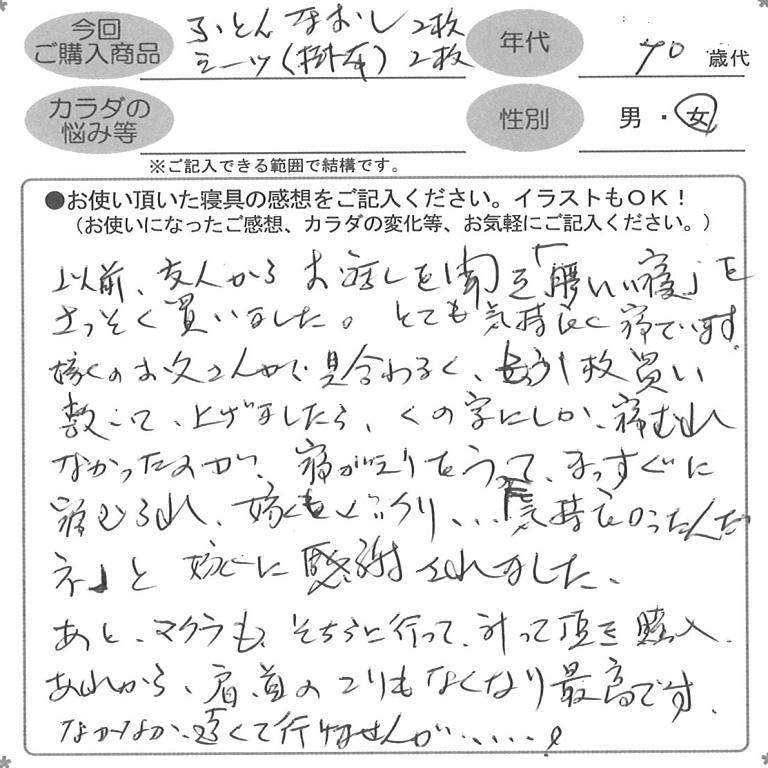 今回
ご購入商品
ふとん なおし 2枚
シーツ(掛布) 2枚
年代
70 歳代
カラダの
悩み等
性別
男・女
※ご記入できる範囲で結構です。
●お使い頂いた寝具の感想をご記入ください。イラストもOK!
(お使いになったご感想、カラダの変化等、お気軽にご記入ください。)
以前、友人から お話しを聞き「腰いい寝」を
さっそく買いました。とても気持良く寝ています。
嫁のお父さんが 具合わるく、もう1枚買い
敷いて、上げましたら、くの字にしか、寝むれ
なかったのが、寝がえりをうって、まっすぐに
寝むられ、嫁もびっくり、、、「気持良かったんだ
ネ」と 嫁に感謝されました、
あと、マクラも、そちらに行って、計って頂き購入、
あれから、肩、首のこりもなくなり最高です、
なかなか、遠くて行けませんが、、、、、